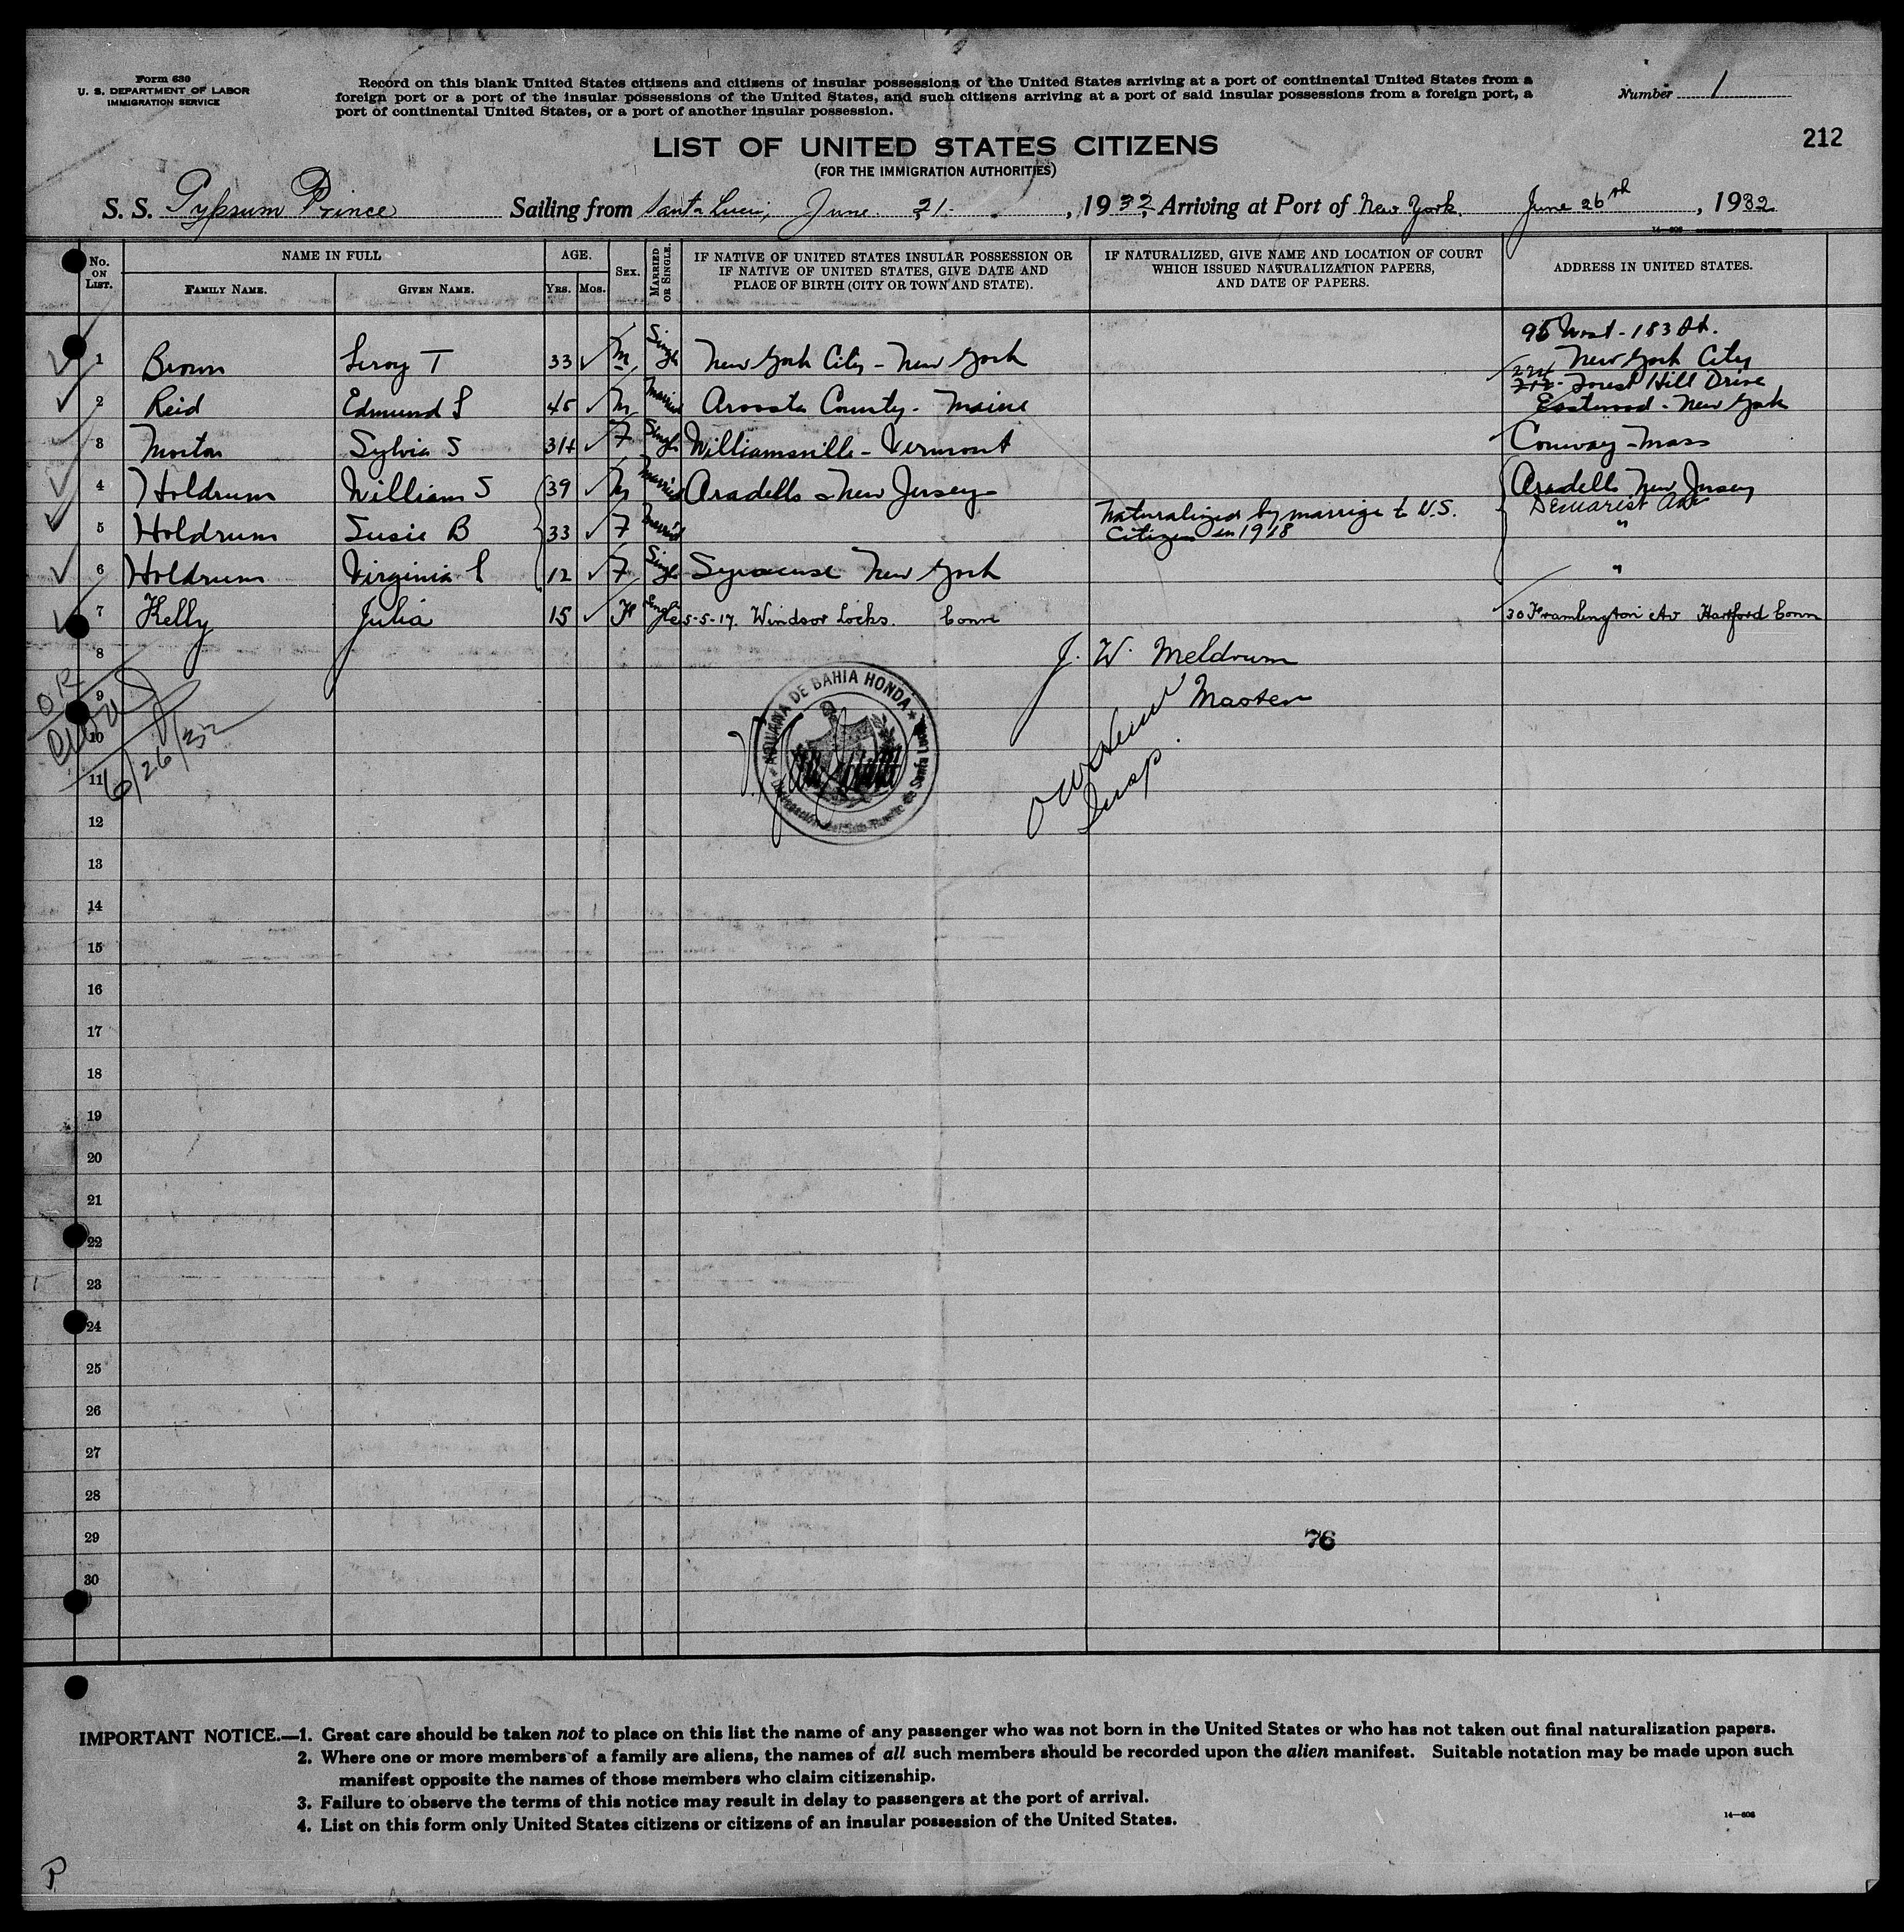 Form 630
U. S. DEPARTMENT OF LABOR
IMMIGRATION SERVICE
Record on this blank United States citizens and citizens of insular possessions of the United States arriving at a port of continental United States from a
foreign port or a port of the insular possessions of the United States, and such citizens arriving at a port of said insular possessions from a foreign port, a
port of continental United States, or a port of another insular possession.
Number 1
212
LIST OF UNITED STATES CITIZENS
(FOR THE IMMIGRATION AUTHORITIES)
S. S. Gypsum Prince Sailing from Santa Lucia, June 21, 1932, Arriving at Port of New York. June 26th, 1932
No. ON LIST. NAME IN FULL AGE. SEX. MARRIED OR SINGLE. IF NATIVE OF UNITED STATES INSULAR POSSESSION OR IF NATIVE OF UNITED STATES, GIVE DATE AND PLACE OF BIRTH (CITY OR TOWN AND STATE). IF NATURALIZED, GIVE NAME AND LOCATION OF COURT WHICH ISSUED NATURALIZATION PAPERS, AND DATE OF PAPERS. ADDRESS IN UNITED STATES.
FAMILY NAME. GIVEN NAME. YRS. MOS.
95 West - 183 St.
1 Brown Leroy T 33 M Single New York City - New York New York City
224 212 - Forest Hill Drive
2 Reid Edmund L 45 M Married Aroosta County - Maine Eastwood - New York
3 Morton Sylvia S 34 F Single Williamsville - Vermont Conway - Mass
4 Holdrum William S 39 M Married Aradells New Jersey Aradells New Jersey
Demarest Ave
5 Holdrum Susie B 33 F Married Naturalized by marrige to U.S. Citizen in 1918 "
6 Holdrum Virginia L 12 F Single Syracuse New York "
7 Kelly Julia 15 F Single 5-5-17. Windsor Locks. Conn 30 Framlington Av Hartford Conn
8 J. W. Meldrum
9 Master
10
11
6/26/32
Insp.
ADUANA DE BAHIA HONDA
12
13
14
15
16
17
18
19
20
21
22
23
24
25
26
27
28
29
76
30
IMPORTANT NOTICE.—1. Great care should be taken not to place on this list the name of any passenger who was not born in the United States or who has not taken out final naturalization papers.
2. Where one or more members of a family are aliens, the names of all such members should be recorded upon the alien manifest. Suitable notation may be made upon such
manifest opposite the names of those members who claim citizenship.
3. Failure to observe the terms of this notice may result in delay to passengers at the port of arrival.
4. List on this form only United States citizens or citizens of an insular possession of the United States.
14—606
P